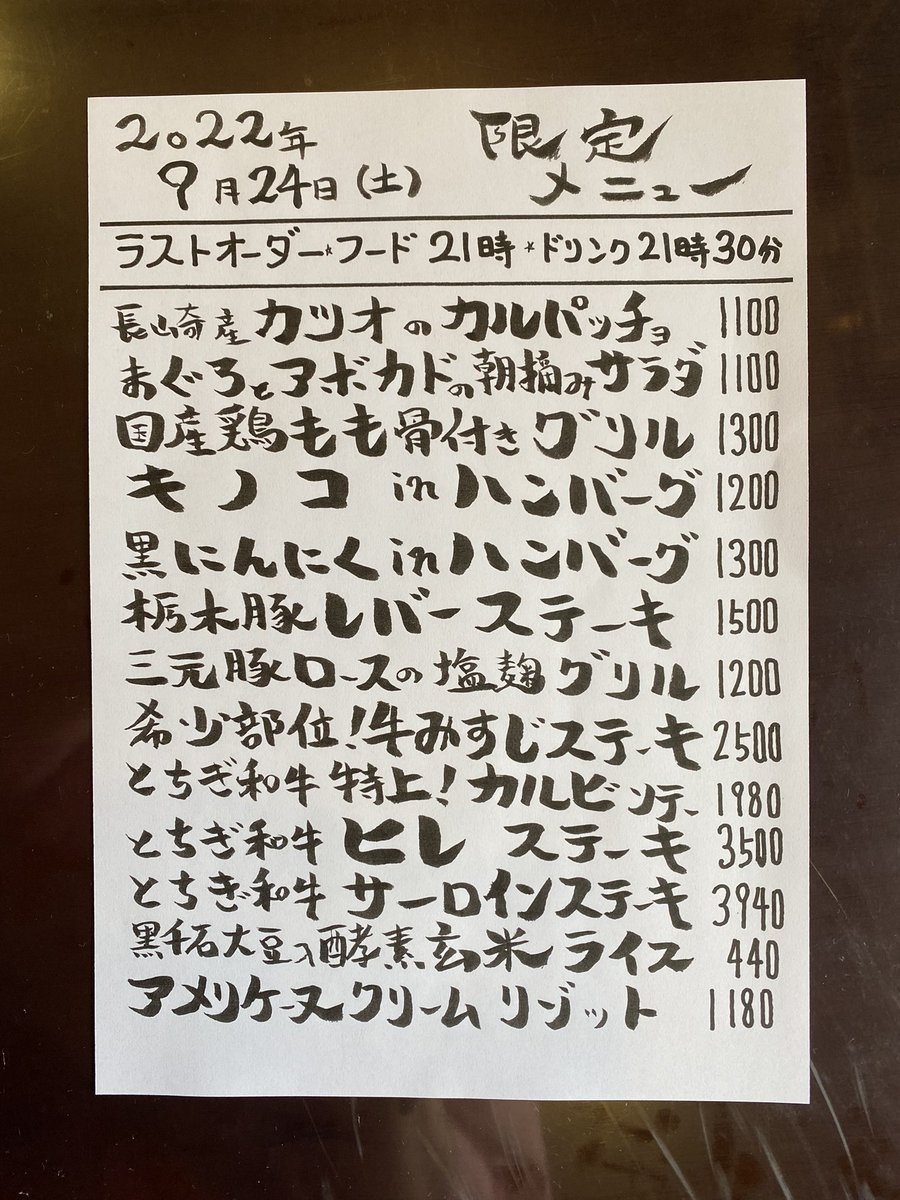 2022年 限定
9月24日(土) メニュー
ラストオーダー*フード 21時 * ドリンク21時30分
長崎産カツオのカルパッチョ 1100
まぐろとアボカドの朝摘みサラダ 1100
国産鶏もも骨付きグリル 1300
キノコ in ハンバーグ 1200
黒にんにく in ハンバーグ 1300
栃木豚レバーステーキ 1500
三元豚ロースの塩麹グリル 1200
希少部位!牛みすじステーキ 2500
とちぎ和牛 特上!カルビソテー 1980
とちぎ和牛 ヒレ ステーキ 3500
とちぎ和牛 サーロインステーキ 3940
黒千石大豆入酵素玄米 ライス 440
アメリケーヌクリームリゾット 1180